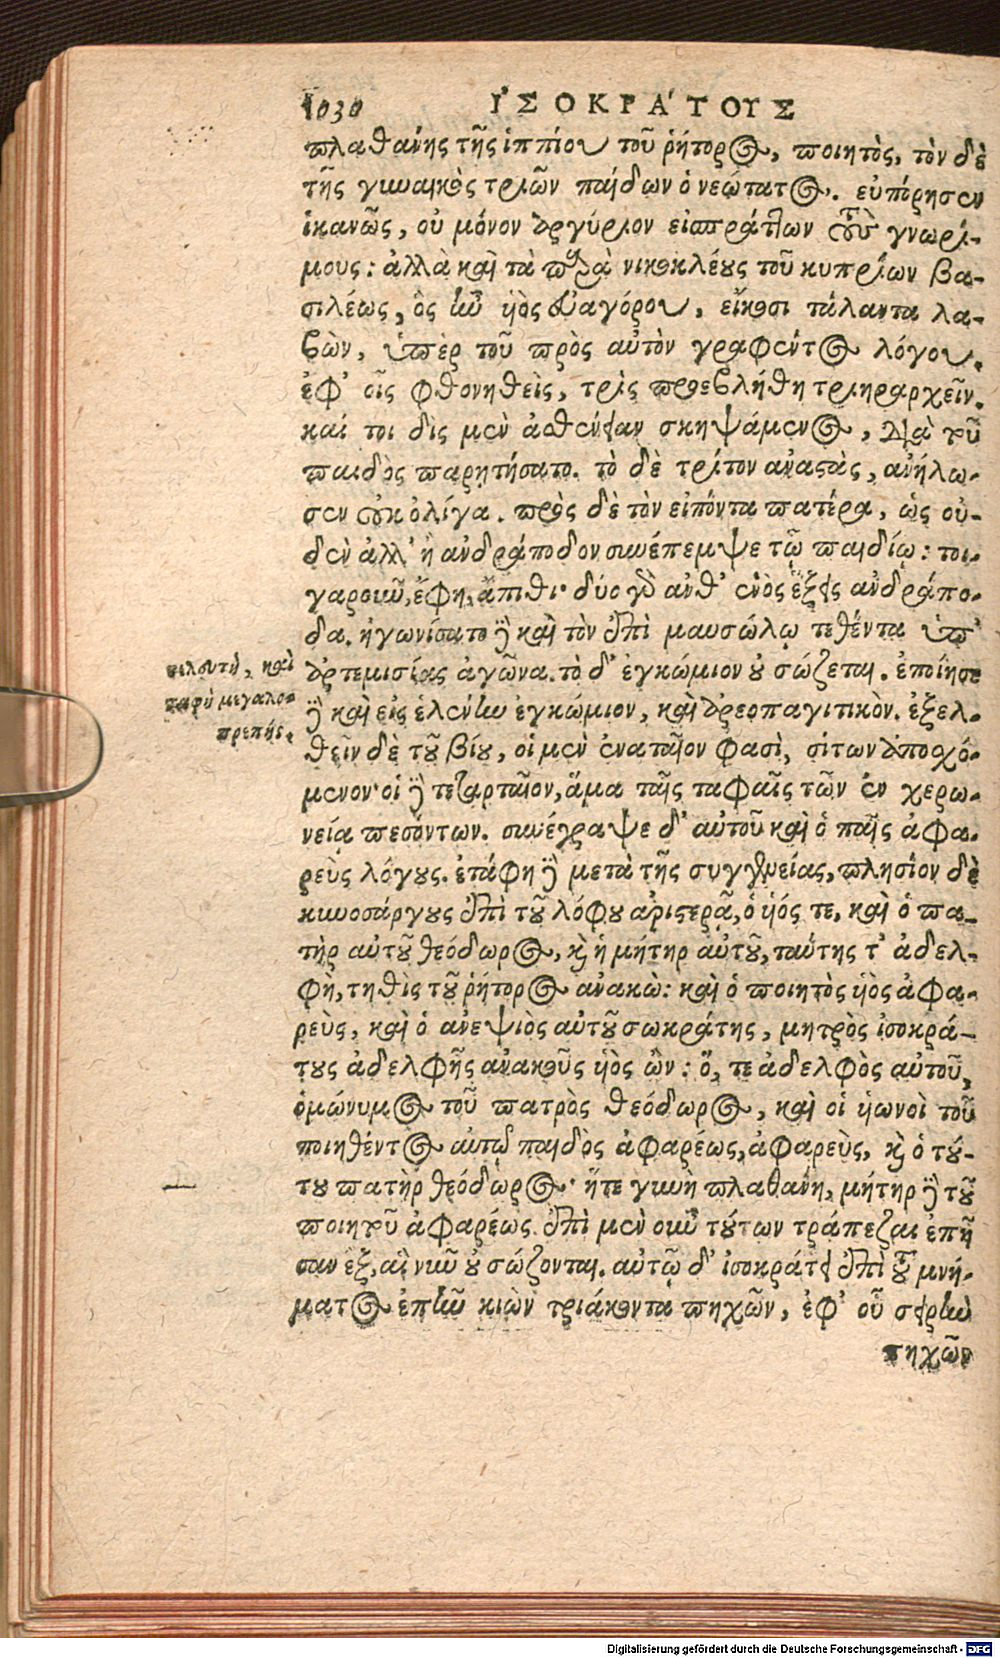 1030 ἸΣΟΚΡΆΤΟΥΣ
πλαθάνης τῆς ἱππίου τοῦ ῥήτορος, ποιητὸς, τὸν δὲ
τῆς γυναικὸς τριῶν παίδων ὁ νεώτατος. εὐπόρησεν
ἱκανῶς, οὐ μόνον ἀργύριον εἰσπράττων τοὺς γνωρί-
μους: ἀλλὰ καὶ τὰ παρὰ νικοκλέους τοῦ κυπρίων βα-
σιλέως, ὃς ἦν ὑὸς εὐαγόρου, εἴκοσι τάλαντα λα-
βὼν, ὑπὲρ τοῦ πρὸς αὐτὸν γραφέντος λόγου.
ἐφ' οἷς φθονηθεὶς, τρὶς προεβλήθη τριηραρχεῖν.
καί τοι δὶς μὲν ἀσθένειαν σκηψάμενος, διὰ τοῦ
παιδὸς παρητήσατο. τὸ δὲ τρίτον ἀναστὰς, ἀνήλω-
σεν οὐκ ὀλίγα. πρὸς δὲ τὸν εἰπόντα πατέρα, ὡς οὐ-
δὲν ἀλλ' ἢ ἀνδράποδον συνέπεμψε τῷ παιδίῳ: τοι-
γαροῦν, ἔφη, ἄπιθι· δύο γὰρ ἀνθ' ἑνὸς ἕξεις ἀνδράπο-
δα. ἠγωνίσατο δὲ καὶ τὸν ἐπὶ μαυσώλῳ τεθέντα ὑπ'
ἀρτεμισίας ἀγῶνα. τὸ δ' ἐγκώμιον οὐ σώζεται. ἐποίησε
δὲ καὶ εἰς ἑλένην ἐγκώμιον, καὶ ἀρεοπαγιτικὸν. ἐξελ-
θεῖν δὲ τοῦ βίου, οἱ μὲν ἐναταῖον φασὶ, σίτων ἀποσχό-
μενον· οἱ δὲ τεταρταῖον, ἅμα ταῖς ταφαῖς τῶν ἐν χερω-
νείᾳ πεσόντων. συνέγραψε δ' αὐτοῦ καὶ ὁ παῖς ἀφα-
ρεὺς λόγους. ἐτάφη δὲ μετὰ τῆς συγγενείας, πλησίον δὲ
κυνοσάργους ἐπὶ τοῦ λόφου ἀριστερᾷ, ὁ ὑός τε, καὶ ὁ πα-
τὴρ αὐτοῦ θεόδωρος, καὶ ἡ μήτηρ αὐτοῦ, ταύτης τ' ἀδελ-
φὴ, τηθὶς τοῦ ῥήτορος ἀνακὼ: καὶ ὁ ποιητὸς ὑὸς ἀφα-
ρεὺς, καὶ ὁ ἀνεψιὸς αὐτοῦ σωκράτης, μητρὸς ἰσοκρά-
τους ἀδελφῆς ἀνακοῦς ὑὸς ὢν: ὅ, τε ἀδελφὸς αὐτοῦ,
ὁμώνυμος τοῦ πατρὸς θεόδωρος, καὶ οἱ ὑωνοὶ τοῦ
ποιηθέντος αὐτῷ παιδὸς ἀφαρέως, ἀφαρεὺς, καὶ ὁ τού-
του πατὴρ θεόδωρος· ἥτε γυνὴ πλαθάνη, μήτηρ δὲ τοῦ
ποιητοῦ ἀφαρέως. ἐπὶ μὲν οὖν τούτων τράπεζαι ἐπῆ
σαν ἓξ, αἳ νῦν οὐ σώζονται. αὐτῷ δ' ἰσοκράτει ἐπὶ τοῦ μνή-
ματος ἐπῆν κιὼν τριάκοντα πηχῶν, ἐφ' οὗ σειρὴν
πηχῶν
τελευτὴ, καὶ
ταφὴ μεγαλο-
πρεπής.
Digitalisierung gefördert durch die Deutsche Forschungsgemeinschaft - DFG